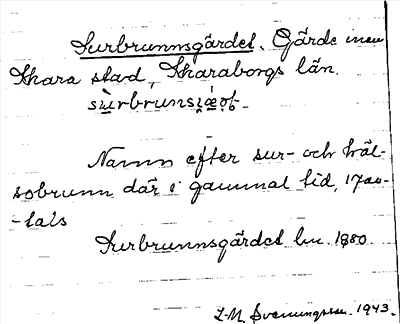 Surbrunnsgärdet. Gärde inom
Skara stad, Skaraborgs län.
Namn efter sur- och häl-
sobrunn där i gammal tid, 1700-
-tals
Surbrunnsgärdet bn. 1880.
L-M. Svenungsson. 1943.